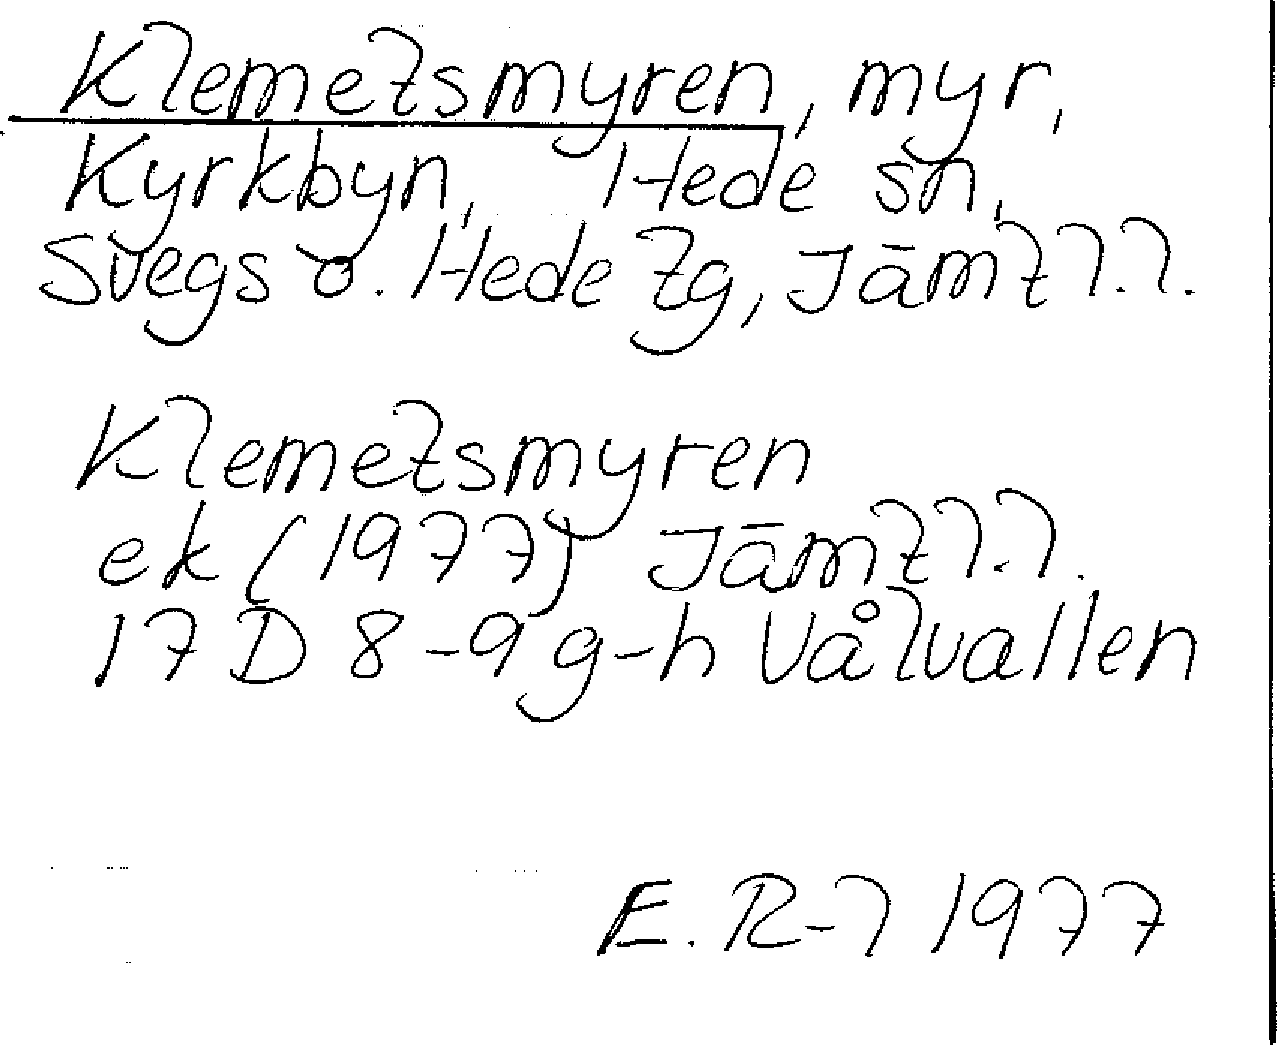 Klemetsmyren, myr,
Kyrkbyn, Hede sn,
Svegs o. Hede tg, Jämtl.l.
Klemetsmyren
ek (1977) Jämtl.l.
17 D 8-9 g-h Vålvallen
E. R-l 1977